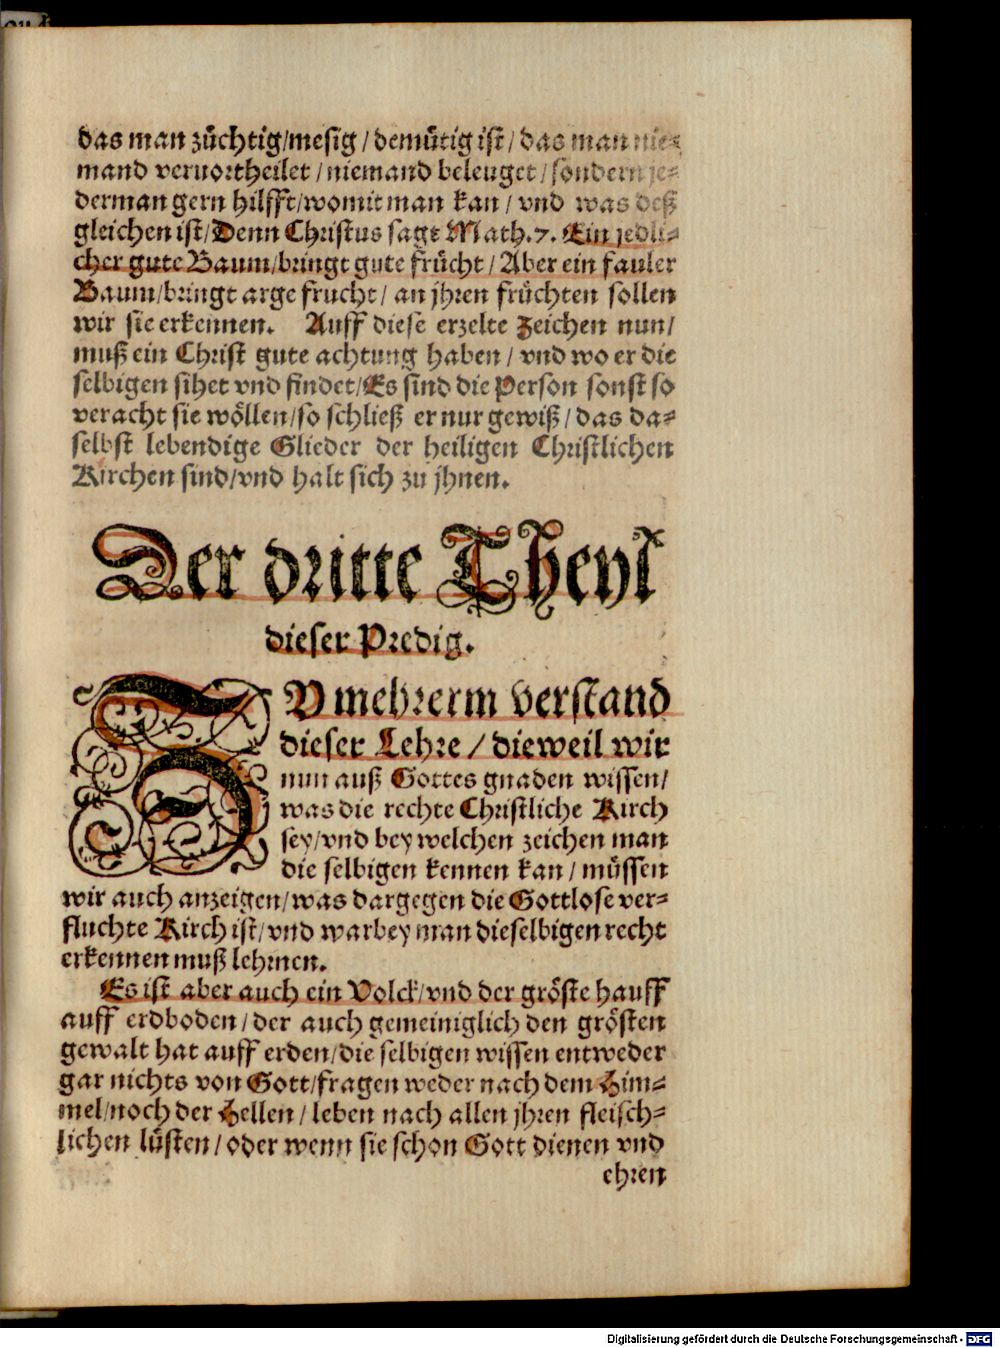 das man züchtig/mesig / demütig ist / das man nie-
mand veruortheilet / niemand beleuget / sondern je-
derman gern hilfft/womit man kan / vnd was deß
gleichen ist/Denn Christus sagt Math.7. Ein jedli-
cher gute Baum/bringt gute frücht / Aber ein fauler
Baum/bringt arge frucht / an jhren früchten sollen
wir sie erkennen. Auff diese erzelte Zeichen nun/
muß ein Christ gute achtung haben / vnd wo er die
selbigen sihet vnd findet/Es sind die Person sonst so
veracht sie wöllen/so schließ er nur gewiß / das da-
selbst lebendige Glieder der heiligen Christlichen
Kirchen sind/vnd halt sich zu jhnen.
Der dritte Theyl
dieser Predig.
ZV mehrerm verstand
dieser Lehre / dieweil wir
nun auß Gottes gnaden wissen/
was die rechte Christliche Kirch
sey/vnd bey welchen zeichen man
die selbigen kennen kan / müssen
wir auch anzeigen/was dargegen die Gottlose ver-
fluchte Kirch ist/vnd warbey man dieselbigen recht
erkennen muß lehrnen.
Es ist aber auch ein Volck/vnd der gröste hauff
auff erdboden / der auch gemeiniglich den grösten
gewalt hat auff erden/die selbigen wissen entweder
gar nichts von Gott/fragen weder nach dem Him-
mel/noch der Hellen / leben nach allen jhren fleisch-
lichen lüsten / oder wenn sie schon Gott dienen vnd
ehren
Digitalisierung gefördert durch die Deutsche Forschungsgemeinschaft - DFG